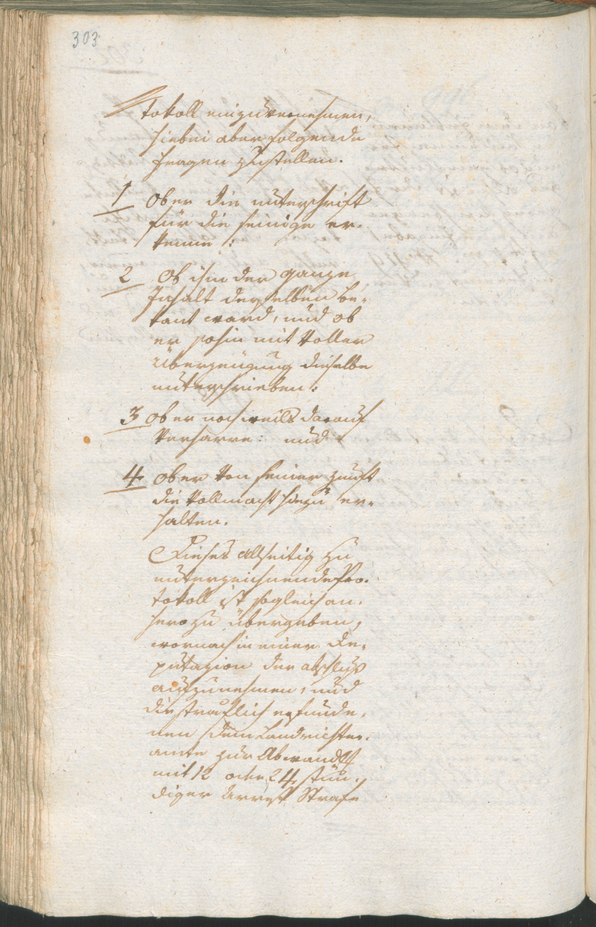 303
tokoll einzuvernehmen,
hiebei aber folgende
Fragen zu stellen.
1 Ob er die unterschrift
für die seinige er-
kenne?:
2 Ob ihm der ganze
Inhalt derselben be-
kant ward, und ob
er sohin mit voller
überzeugung dieselbe
unterschrieben:
3 Ob er noch darauf
verharre: und
4 Ob er von seiner Zunft
die Vollmacht hiezu er-
halten.
Dieses allseitig zu
unterzeichnende Pro-
tokoll ist sogleich an-
hero zu übergeben,
wornach in einer De-
putazion der abschluß
aufzunehmen, und
die sträflich erfunde-
nen dem Landrichter-
amte zur
mit 12 oder 24 stün-
diger Arrest Strafe